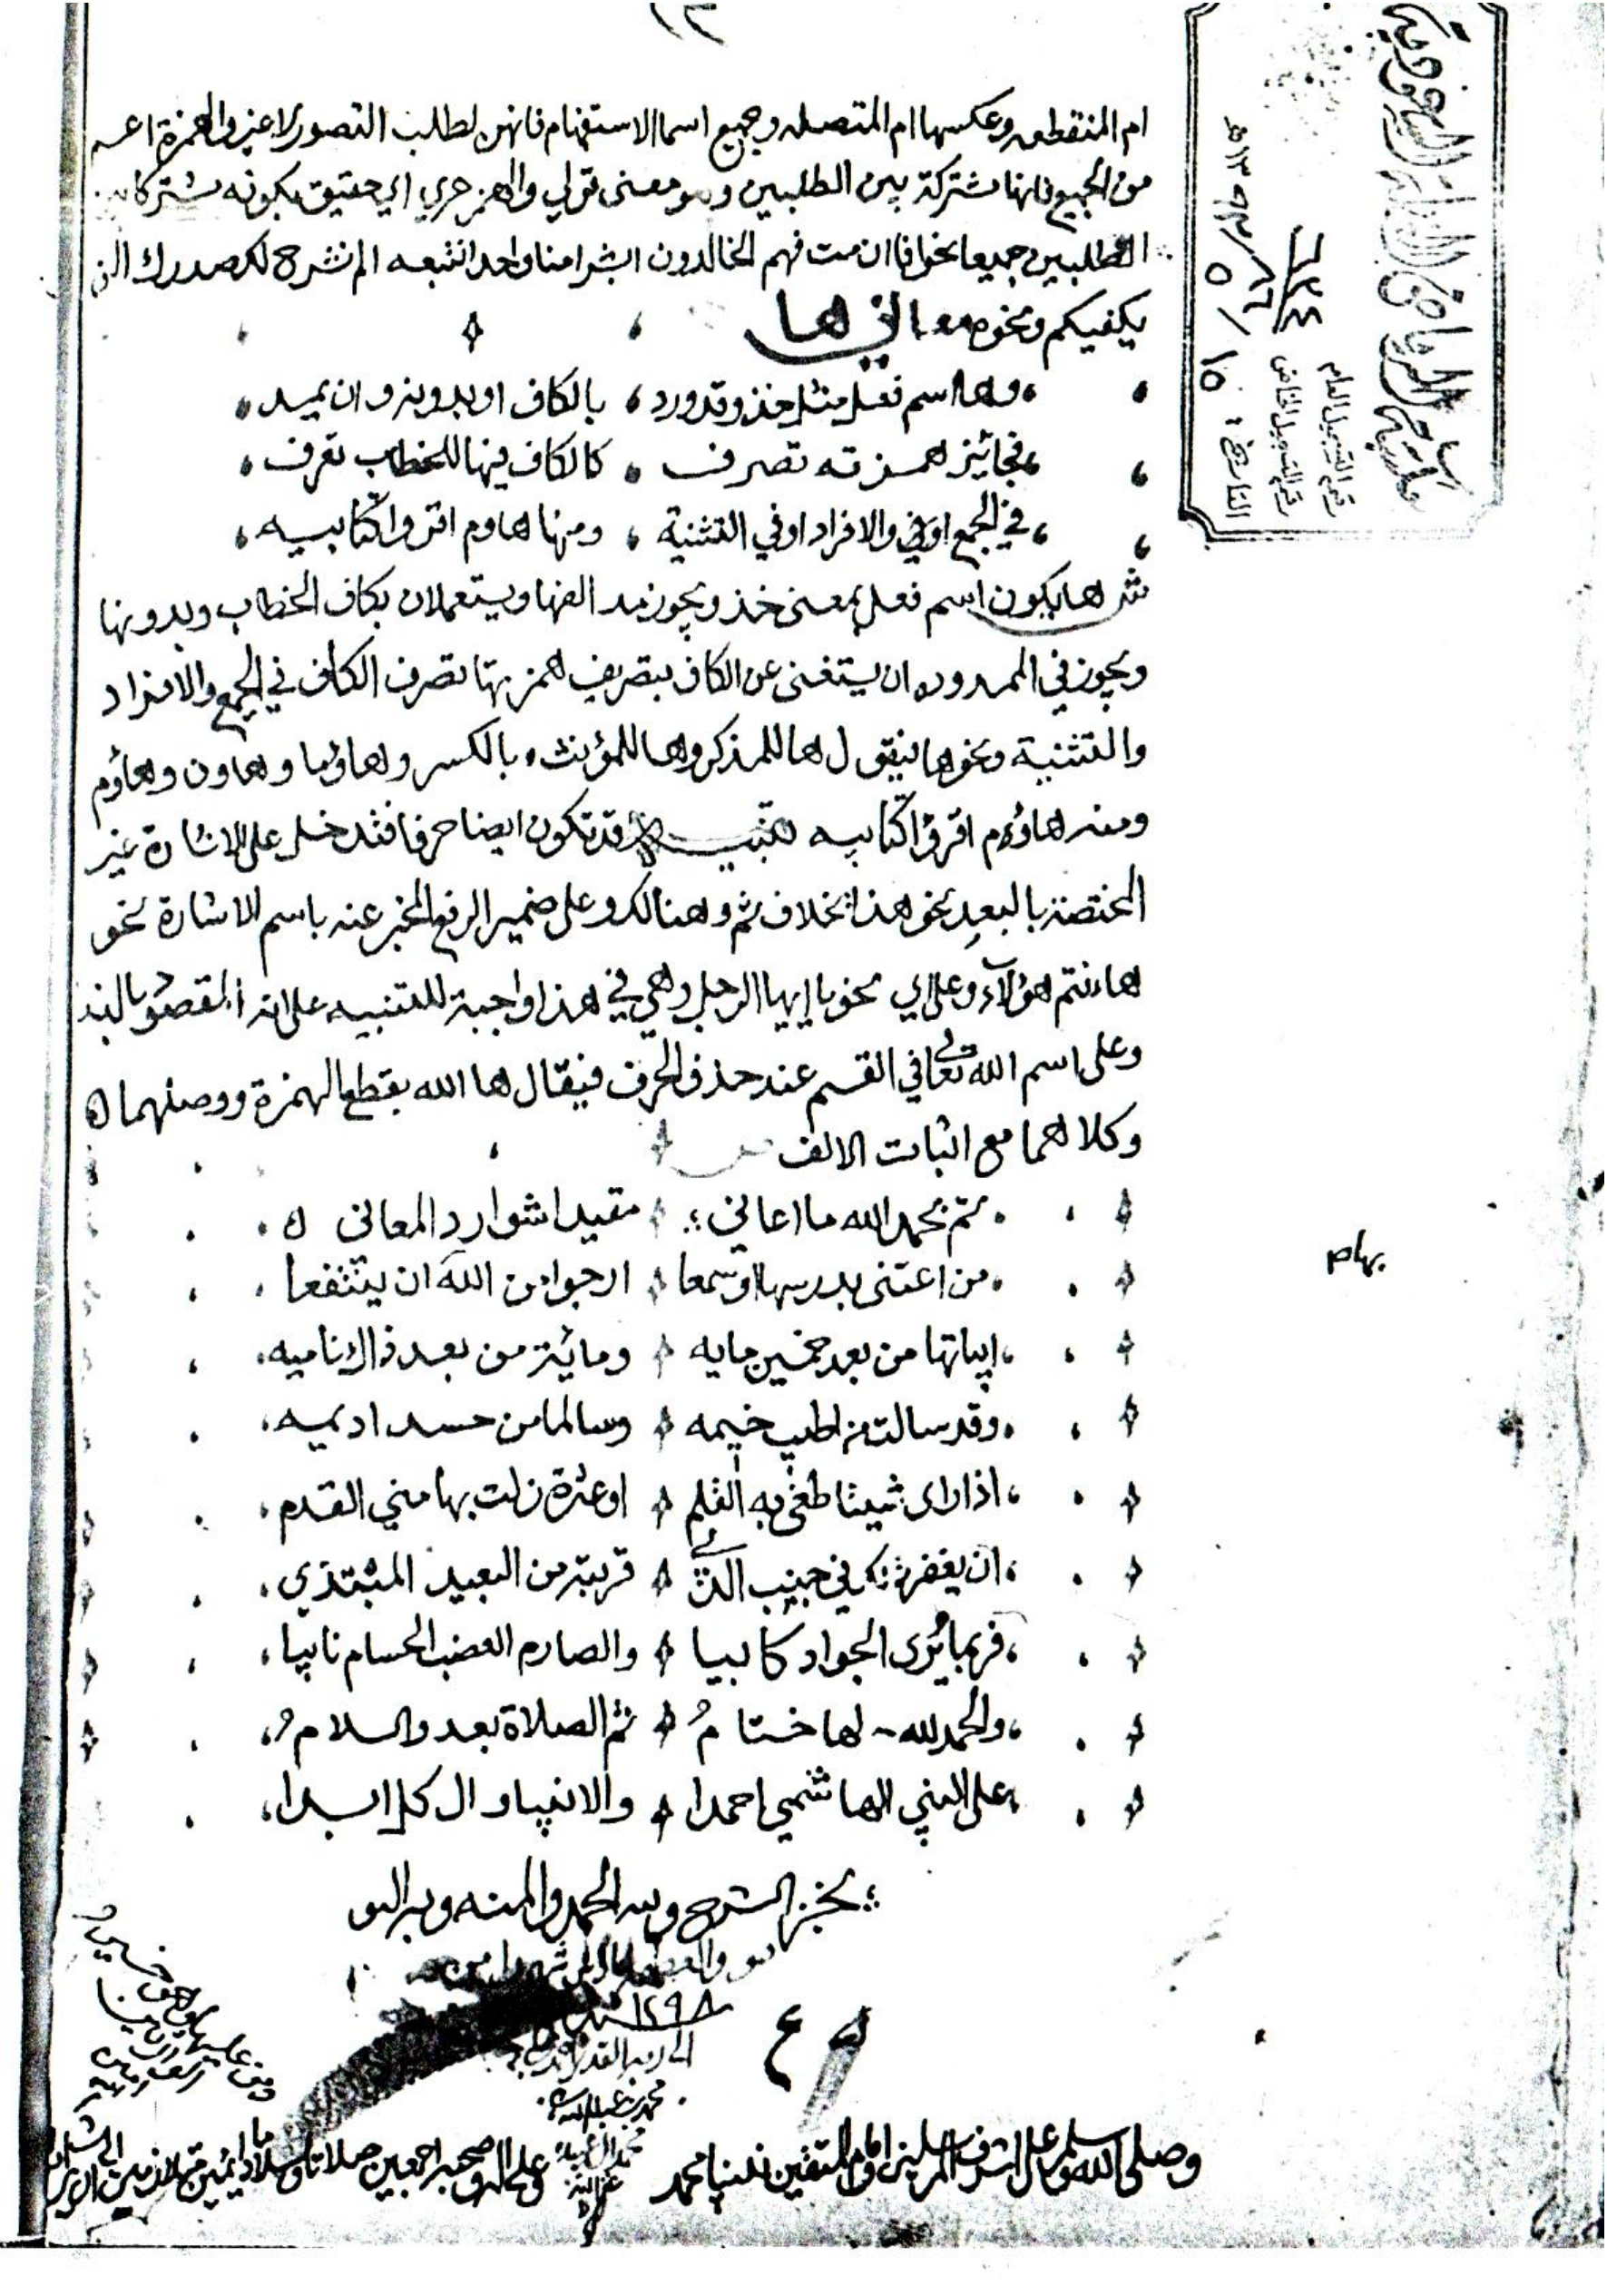 ١٣
ام المنقطعه وعكسها ام المتصله وجميع اسما الاستفهام فانهن لطلب التصور لا غير والهمزة اعم
من الجميع فانها مشتركة بين الطلبين وهو معنى قولي والهمز حري اي حقيق بكونه مشتركا بين
الطلبين جميعا نحو افاان مت فهم الخالدون ابشرا منا واحدا نتبعه الم نشرح لك صدرك الن
يكفيكم ونحوه معاني ها
وها اسم فعل مثل خذ وقد ورد بالكاف او بدونه وان يمد
فجائز همزته تصرف كالكاف فيها للخطاب تعرف
في الجمع او في والافراد او في التثنية ومنها هاوم اقروا كتابيه
ش ها يكون اسم فعل بمعنى خذ ويجوز مد الفها ويستعملان بكاف الخطاب وبدونها
ويجوز في الممدوده ان يستغنى عن الكاف بتصريف همزتها تصرف الكاف في الجمع والافراد
والتثنية ونحوها فيقول ها للمذكر وها للمؤنث بالكسر وهاؤما وهاون وهاؤم
ومنه هاؤم اقرؤا كتابيه تنبيه قد تكون ايضا حرفا فتدخل على الاشارة غير
المختصة بالبعد نحو هذا بخلاف ثم وهنالك وعلى ضمير الرفع المخبر عنه باسم الاشارة نحو
هاءنتم هؤلآء وعلى اي نحو يا ايها الرجل وهي في هذا واجبة للتنبيه على انه المقصود بالندا
وعلى اسم الله تعالى في القسم عند حذف الحرف فيقال ها الله بقطع الهمزة ووصلهما
وكلاهما مع اثبات الالف
تم بحمد الله ما اعاني مقيدا شوارد المعاني
من اعتنى بدرسها او سمعا ارجوا من الله ان ينتفعا
ابياتها من بعد خمسين مايه ومائة من بعد ذاك ناميه
وقد سالت من اطيب خيمه وسالما من حسد اديمه
اذا راى شيئا طغى به القلم او عثرة زلت بها مني القدم
ان يغفر في جنب الذي قربته من البعيد
فربما يرى الجواد كابيا والصارم العضب الحسام نابيا
والحمد لله لها ختام ثم الصلاة بعد والسلام
على النبي الهاشمي احمدا والانبيا وال كل ابدا
نجز الشرح ولله الحمد والمنه
١٢٩٨
وصلى الله وسلم على اشرف المرسلين وامام المتقين نبينا محمد وعلى اله وصحبه اجمعين صلاة وسلاما دائمين متلازمين الى
بهام
مكتبة الرياض العامة السعودية
رقم التسجيل العام
رقم التسجيل الخاص ٨٦
التاريخ: ١٥ / ٥ / ١٣٩٢ هـ